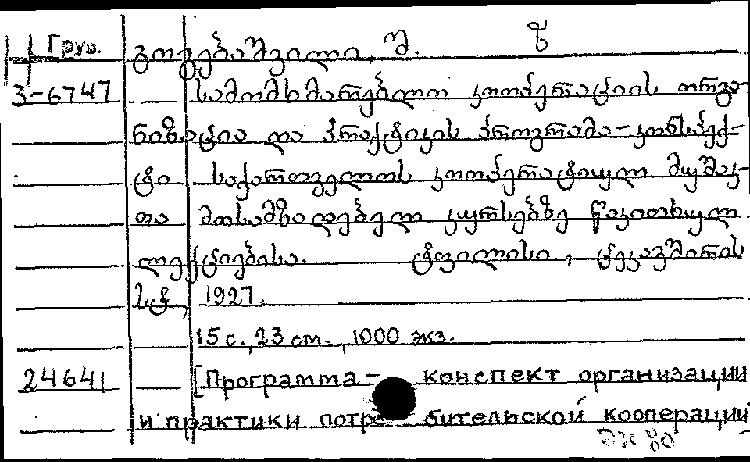 Груз. გოგებაშვილი, შ.
3-6747 სამომხმარებლო კოოპერაციის ორგა-
ნიზაცია და პრაქტიკის პროგრამა-კონსპექ-
ტი საქართველოს კოოპერატიულ მუშაკ-
თა მოსამზადებელ კურსებზე წაკითხულ
ლექციებისა. ტფილისი, ცეკავშირის
1927.
15 с., 23 см., 1000 экз.
24641 [Программа - конспект организации
и практики потребительской кооперации